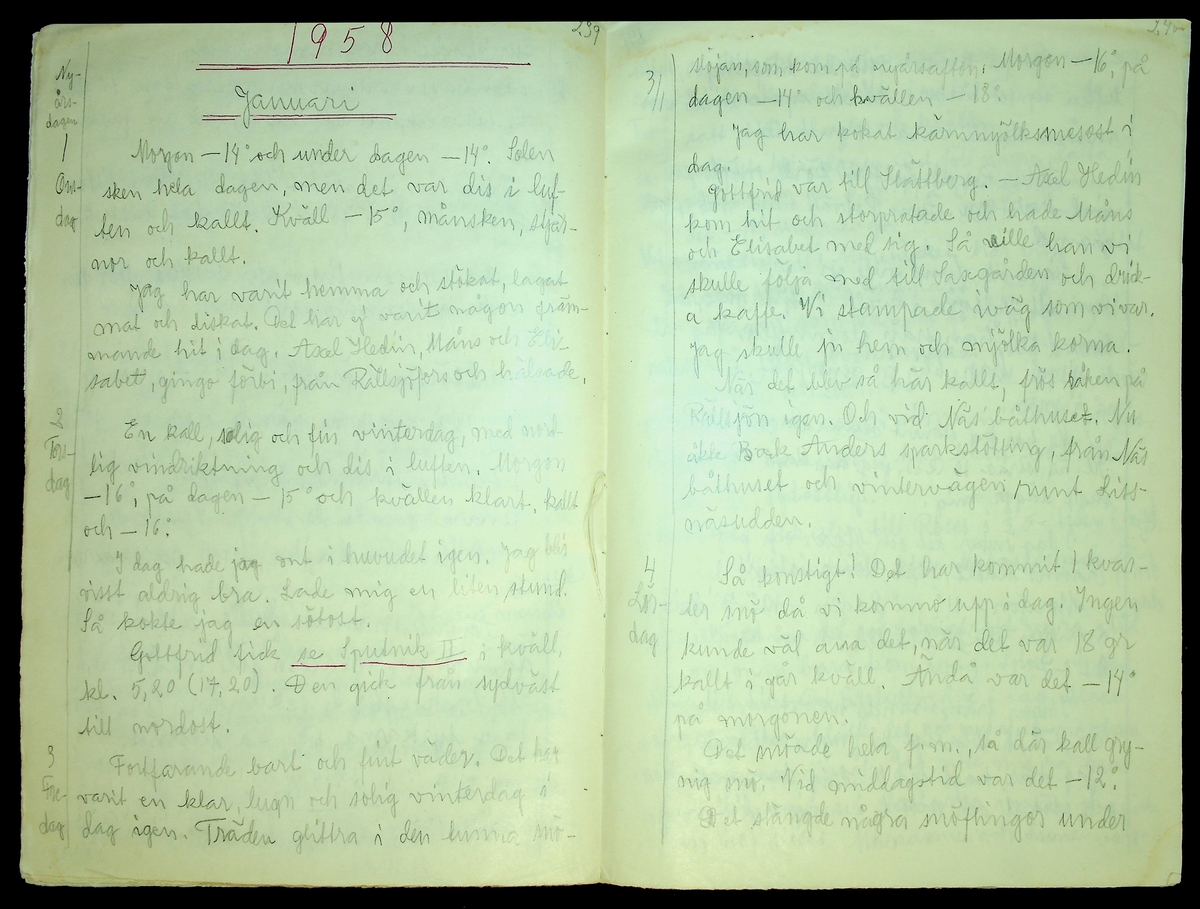 239
1958
Januari
Ny-
års-
dagen
1
Ons-
dag
Morgon -14° och under dagen -14°. Solen
sken hela dagen, men det var dis i luf-
ten och kallt. Kväll -15°, månsken, stjär-
nor och kallt.
Jag har varit hemma och stökat, lagat
mat och diskat. Det har ej varit någon främ-
mande hit i dag. Axel Hedin, Måns och Eli-
sabet, gingo förbi, från Rällsjöfors och hälsade.
2
Tors-
dag
En kall, solig och fin vinterdag, med nord-
lig vindriktning och dis i luften. Morgon
-16°, på dagen -15° och kvällen klart, kallt
och -16°.
I dag hade jag ont i huvudet igen. Jag blir
visst aldrig bra. Lade mig en liten stund.
Så kokte jag en sötost.
Gottfrid fick se Sputnik II i kväll,
kl. 5,20 (17,20). Den gick från sydväst
till nordost.
3
Fre-
dag
Fortfarande bart och fint väder. Det har
varit en klar, lugn och solig vinterdag i
dag igen. Träden glittra i den tunna snö-
240
3/1
slöjan, som kom på nyårsafton. Morgon -16°, på
dagen -14° och kvällen -18°.
Jag har kokat kärnmjölksmesost i
dag.
Gottfrid var till Slättberg. - Axel Hedin
kom hit och storpratade och hade Måns
och Elisabet med sig. Så ville han vi
skulle följa med till Saxgården och drick-
a kaffe. Vi stampade iväg som vi var.
Jag skulle ju hem och mjölka korna.
När det blev så här kallt, frös råken på
Rällsjön igen. Och vid Näs båthuset. Nu
åkte Back Anders sparkstötting, från Näs
båthuset och vintervägen runt Liss-
näsudden.
4
Lör-
dag
Så konstigt! Det har kommit 1 kvar-
ter snö då vi kommo upp i dag. Ingen
kunde väl ana det, när det var 18 gr
kallt i går kväll. Ändå var det -14°
på morgonen.
Det snöade hela f.m., så där kall gry-
nig snö. Vid middagstid var det -12°.
Det slängde några snöflingor under